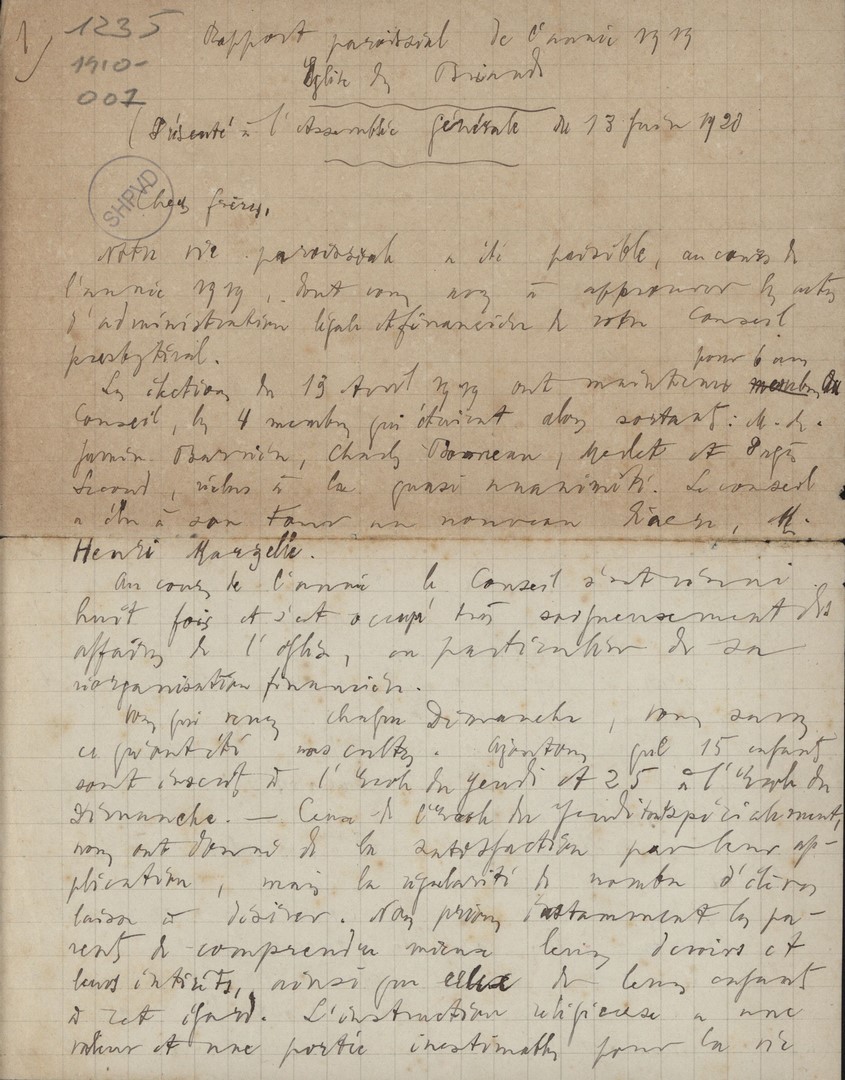 1)
1235
1910-
001
Rapport paroissial de l'année 1919
Eglise de
(Présenté à l'Assemblée générale du 13 Juin 1920
SHPVD
Chers frères,
Notre vie paroissiale a été paisible, au cours de
l'année 1919, dont vous avez à approuver les actes
d'administration légale et financière de votre Conseil
presbytéral.
pour 6 ans
Les élections du 13 Avril 1919 ont maintenu membres du
Conseil, les 4 membres qui étaient alors sortants : M. M.
Jamin Barrière, Charles Bonneau, et
Second, réélus à la quasi unanimité. Le conseil
a élu à son tour un nouveau Diacre, M.
Henri
Au cours de l'année le Conseil s'est réuni
huit fois et s'est occupé très soigneusement des
affaires de l'Eglise, en particulier de sa
réorganisation financière.
Vous qui venez chaque Dimanche, vous savez
ce qu'ont été nos cultes. Ajoutons que 15 enfants
sont inscrits à l'Ecole du Jeudi et 25 à l'Ecole du
Dimanche. — Ceux de l'Ecole du Jeudi tout spécialement,
nous ont donné de la satisfaction par leur ap-
plication, mais la régularité de nombre d'élèves
laisse à désirer. Nous prions instamment les pa-
rents de comprendre mieux leurs devoirs et
leurs intérêts, ainsi que ceux de leurs enfants
à cet égard. L'instruction religieuse a une
valeur et une portée inestimables pour la vie